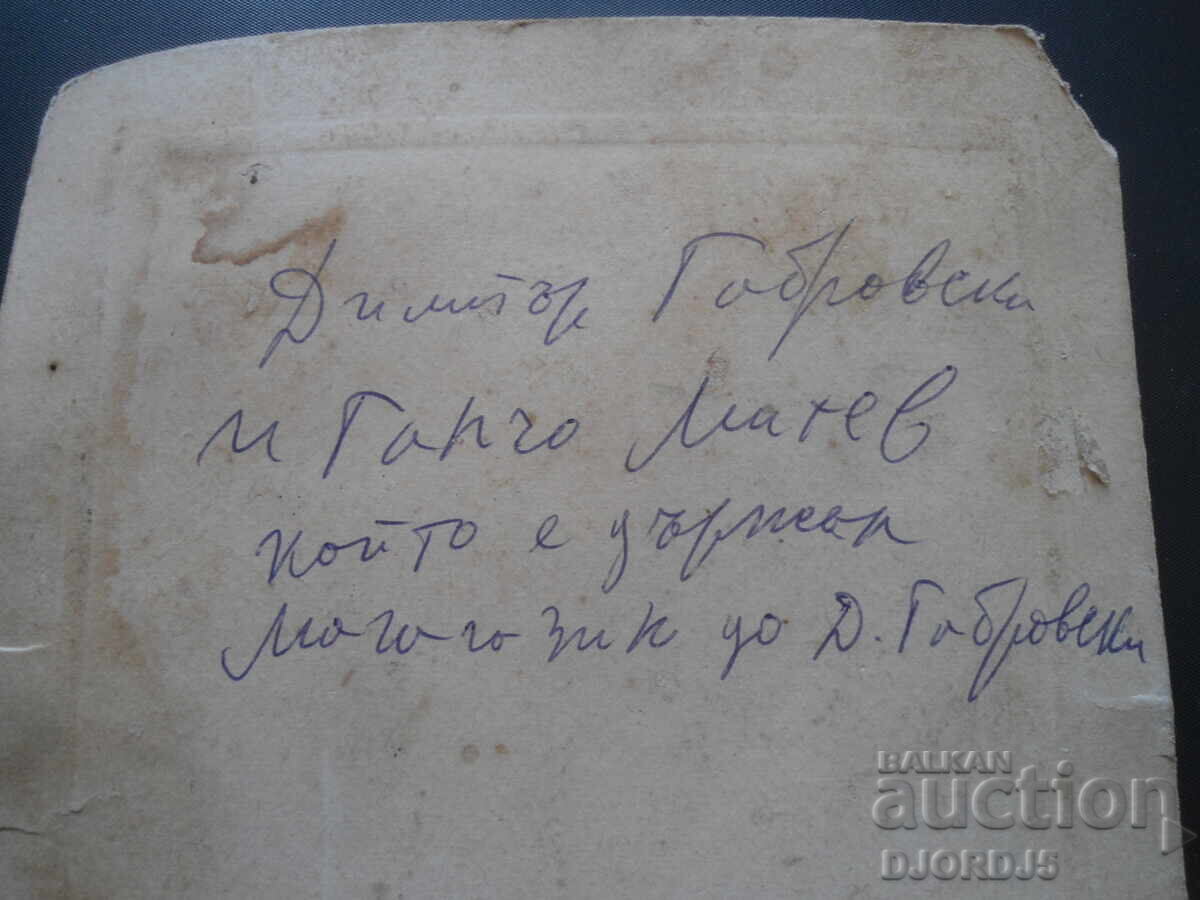 Димитър Габровски
и Ганчо Митев
който е държал
до Д. Габровски
BALKAN
auction
DJORDJ5